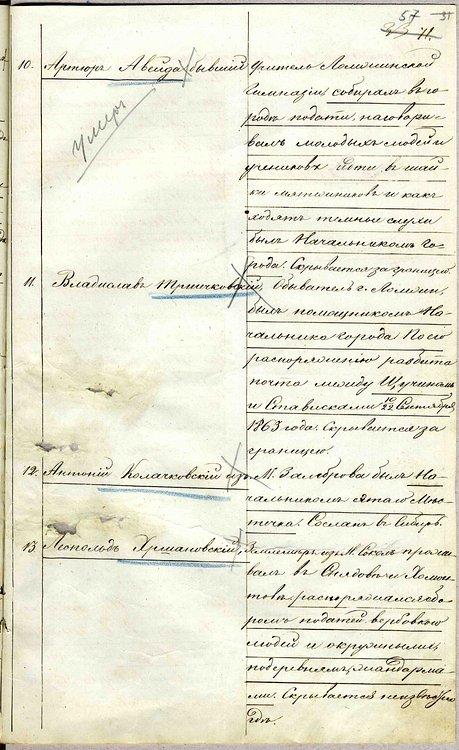 57
10. Артюръ Авейда бывшій учитель Ломжинской
Гимназіи, собиралъ въ го-
родѣ подати, наговари-
валъ молодыхъ людей и
учениковъ идти въ шай-
ки мятежниковъ и какъ
ходятъ темные слухи
былъ Начальникомъ Го-
рода. Скрывается за границей.
умеръ
11. Владиславъ обыватель г. Ломжи,
былъ помощникомъ На-
чальника города По его
распоряженію разбита
почта между Щучинымъ
и Стависками 10/22 Сентября
1863 года. Скрывается за
границею.
12. Антоній Колачковскій изъ М. былъ На-
чальникомъ
Сосланъ въ Сибирь.
13. Леопольдъ изъ М. Соколъ прожи-
валъ въ Снядовѣ и
распоряжался сбо-
ромъ податей вербовкою
людей и окружными,
по деревнямъ, жандарма-
ми. Скрывается неизвѣстно
гдѣ.